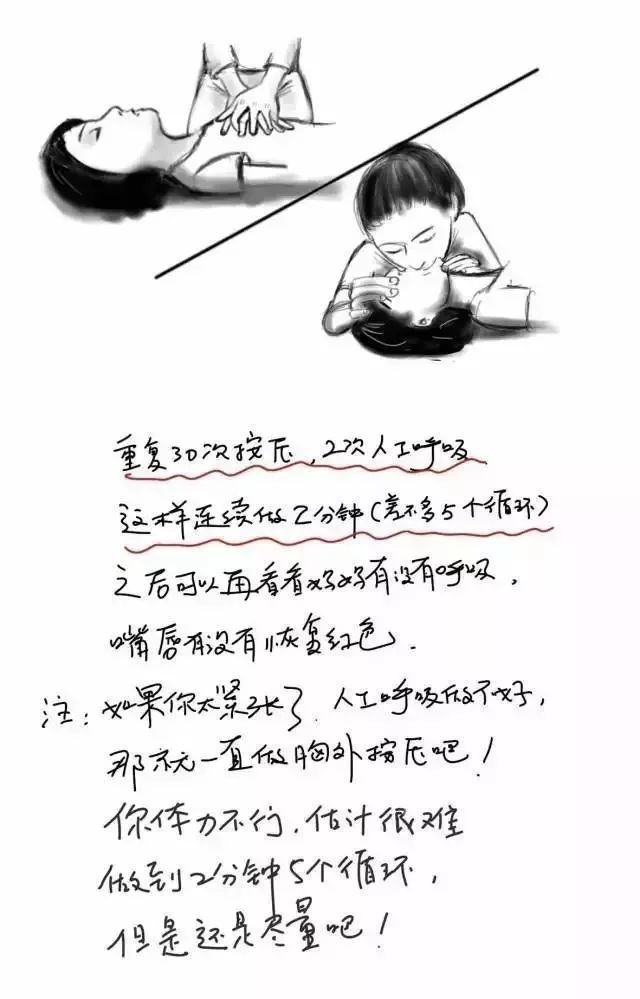 重复30次按压,2次人工呼吸
这样连续做2分钟(差不多5个循环)
之后可以再看看妈妈有没有呼吸,
嘴唇有没有恢复红色.
注:如果你太紧张了.人工呼吸做不好,
那就一直做胸外按压吧!
你体力不行,估计很难
做到2分钟5个循环,
但是还是尽量吧!